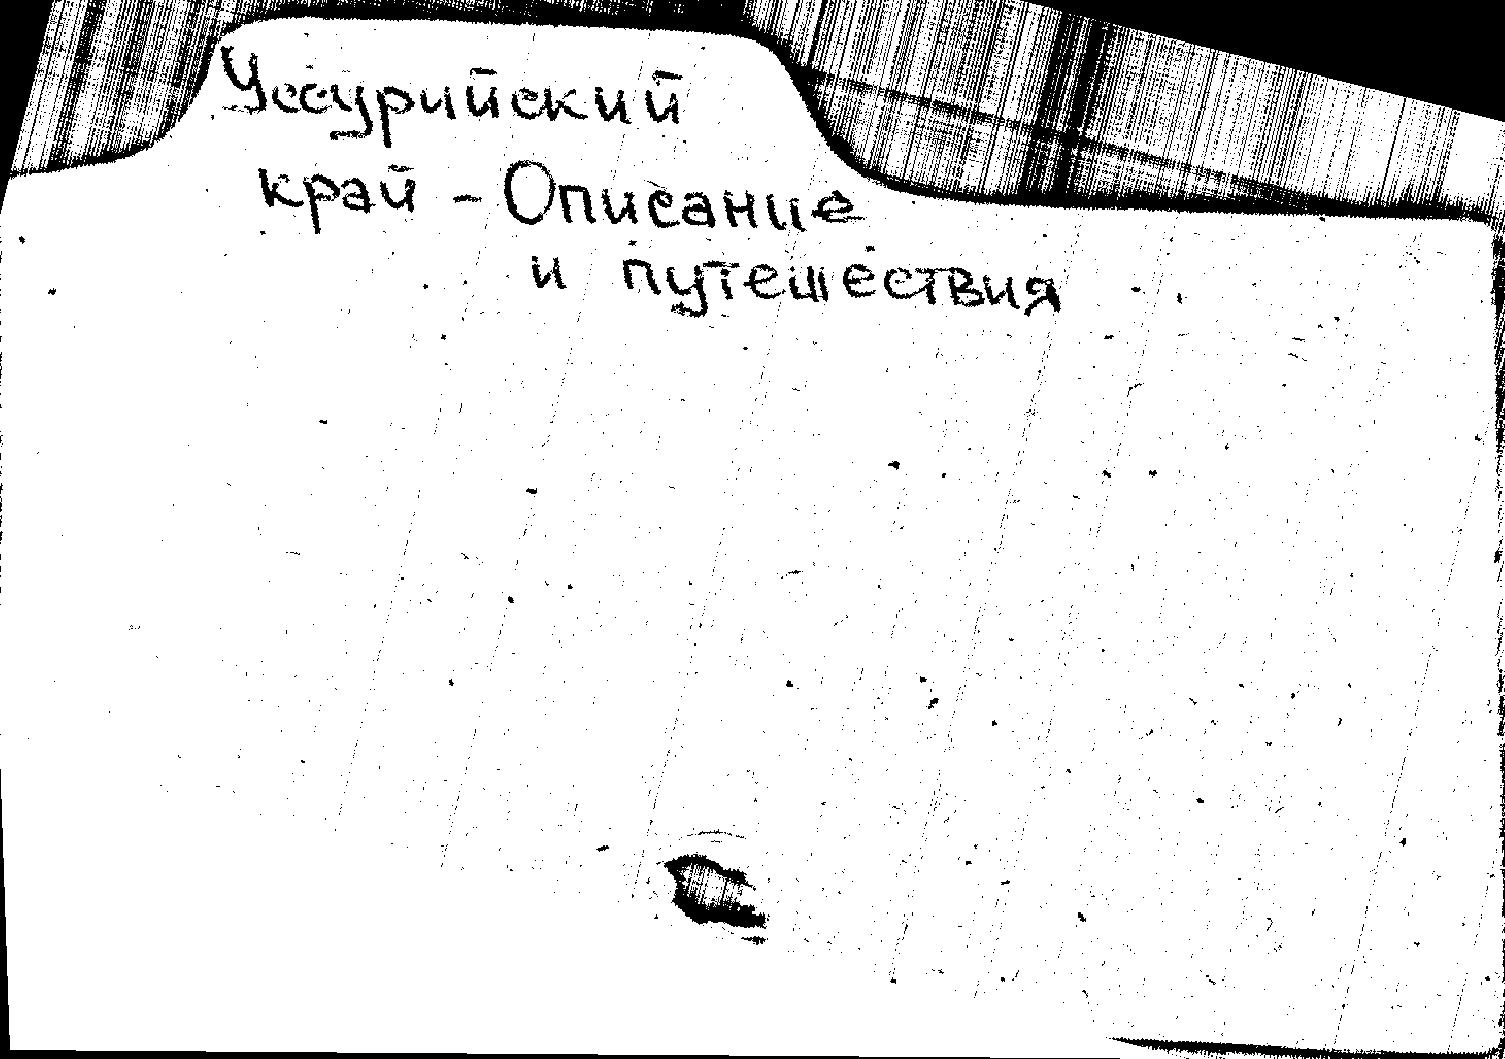 Уссурийский
край - Описание
и путешествия